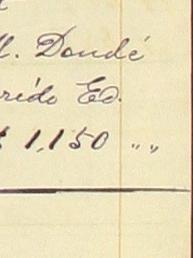 M. Dondé
redo Ed.
$ 1,150 " "